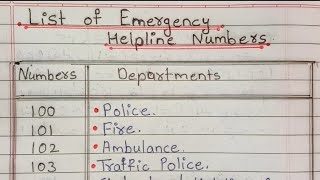 List of Emergency
Helpline Numbers
Numbers Departments
100 • Police.
101 • Fire.
102 • Ambulance.
103 • Traffic Police.